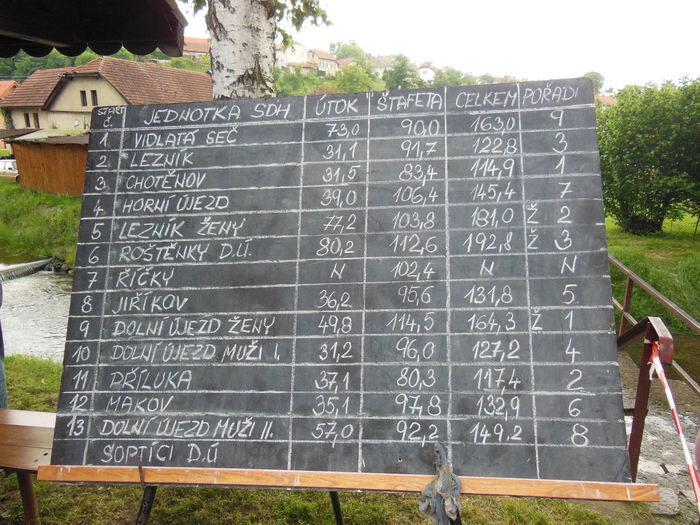 START. Č. JEDNOTKA SDH ÚTOK ŠTAFETA CELKEM POŘADÍ
1 VIDLATÁ SEČ 73,0 90,0 163,0 9
2 LEZNÍK 31,1 91,7 122,8 3
3 CHOTĚNOV 31,5 83,4 114,9 1
4 HORNÍ ÚJEZD 39,0 106,4 145,4 7
5 LEZNÍK ŽENY 77,2 103,8 181,0 Ž 2
6 ROŠTĚNKY D.Ú. 80,2 112,6 192,8 Ž 3
7 ŘÍČKY N 102,4 N N
8 JIŘÍKOV 36,2 95,6 131,8 5
9 DOLNÍ ÚJEZD ŽENY 49,8 114,5 164,3 Ž 1
10 DOLNÍ ÚJEZD MUŽI I. 31,2 96,0 127,2 4
11 PŘÍLUKA 37,1 80,3 117,4 2
12 MAKOV 35,1 97,8 132,9 6
13 DOLNÍ ÚJEZD MUŽI II. 57,0 92,2 149,2 8
SOPTÍCI D.Ú